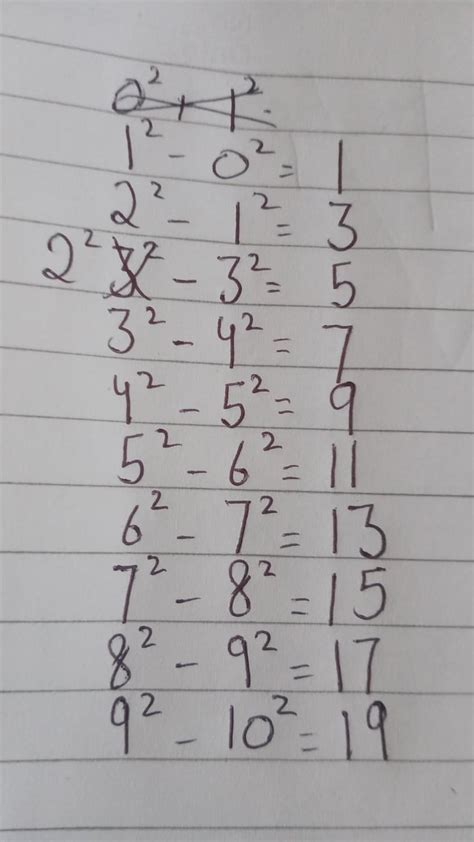 0² + 1²
1² - 0² = 1
2² - 1² = 3
2² 3² - 3² = 5
3² - 4² = 7
4² - 5² = 9
5² - 6² = 11
6² - 7² = 13
7² - 8² = 15
8² - 9² = 17
9² - 10² = 19